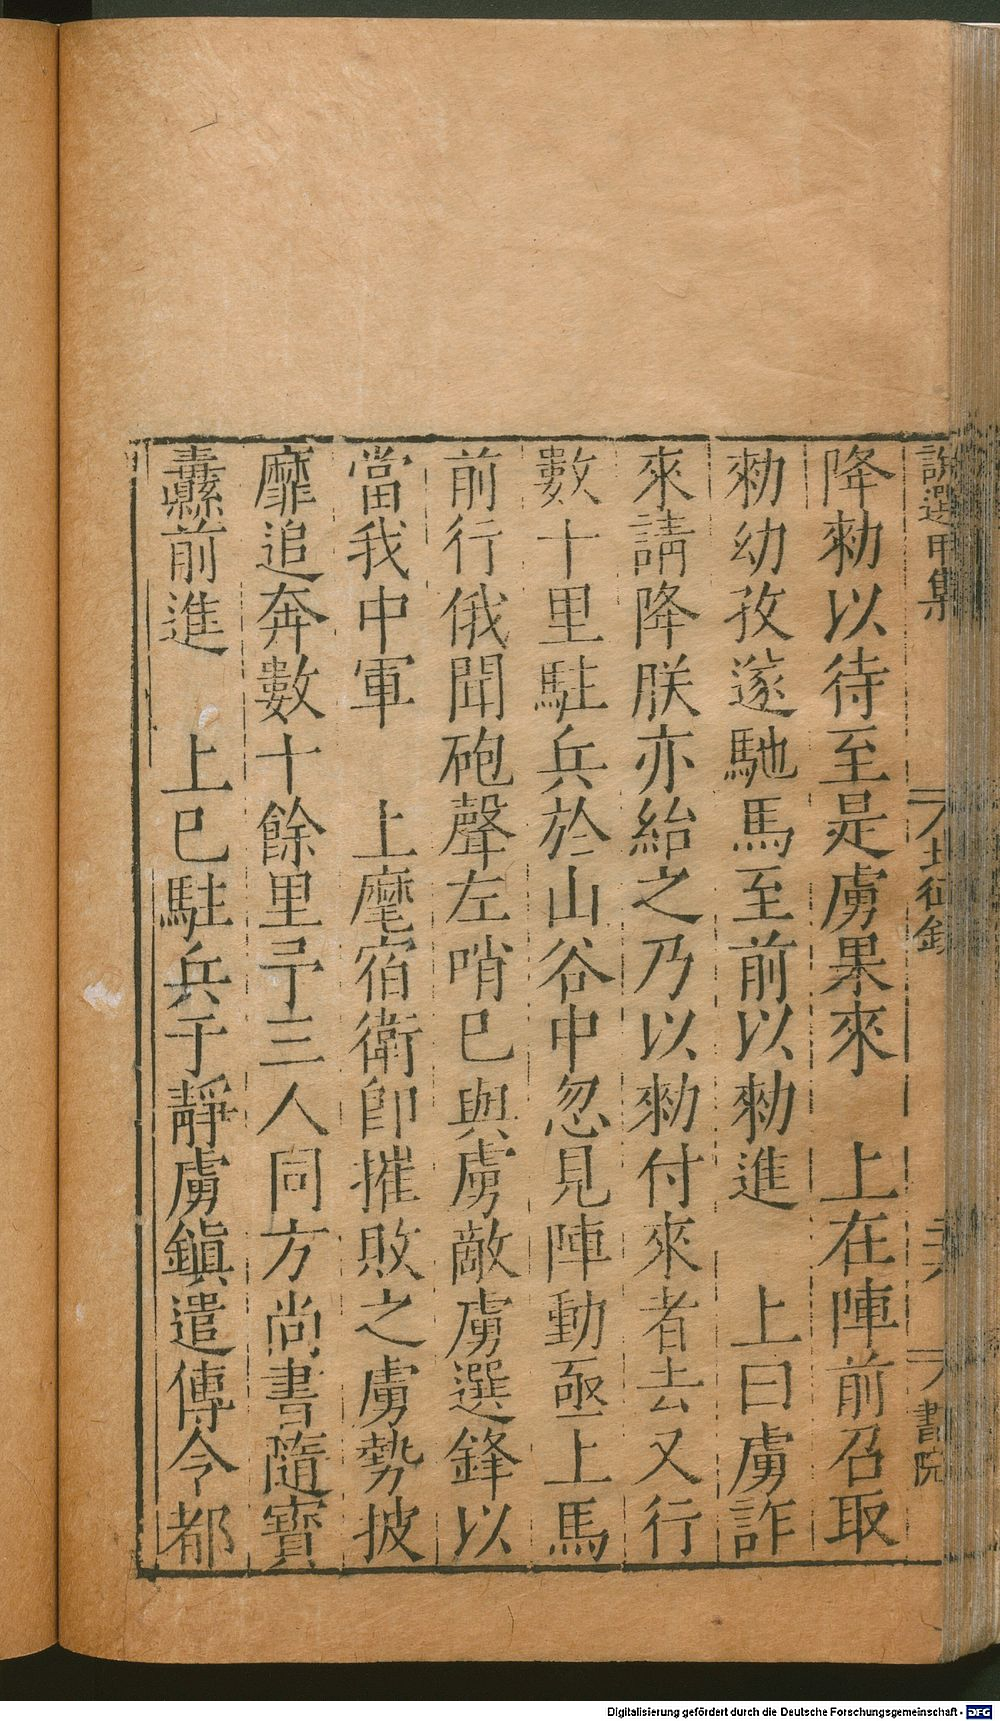 說選甲集 北征錄 書院
降勑以待至是虜果來　上在陣前召取
勑幼孜遂馳馬至前以勑進　上曰虜詐
來請降朕亦紿之乃以勑付來者去又行
數十里駐兵於山谷中忽見陣動亟上馬
前行俄聞砲聲左哨已與虜敵虜選鋒以
當我中軍　上麾宿衛即摧敗之虜勢披
靡追奔數十餘里予三人同方尚書隨寶
纛前進　上已駐兵于靜虜鎮遣傳令都
Digitalisierung gefördert durch die Deutsche Forschungsgemeinschaft - DFG